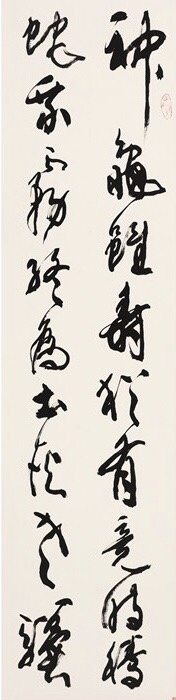 神龜雖壽犹有竟時騰
蛇乘霧終為土灰老驥